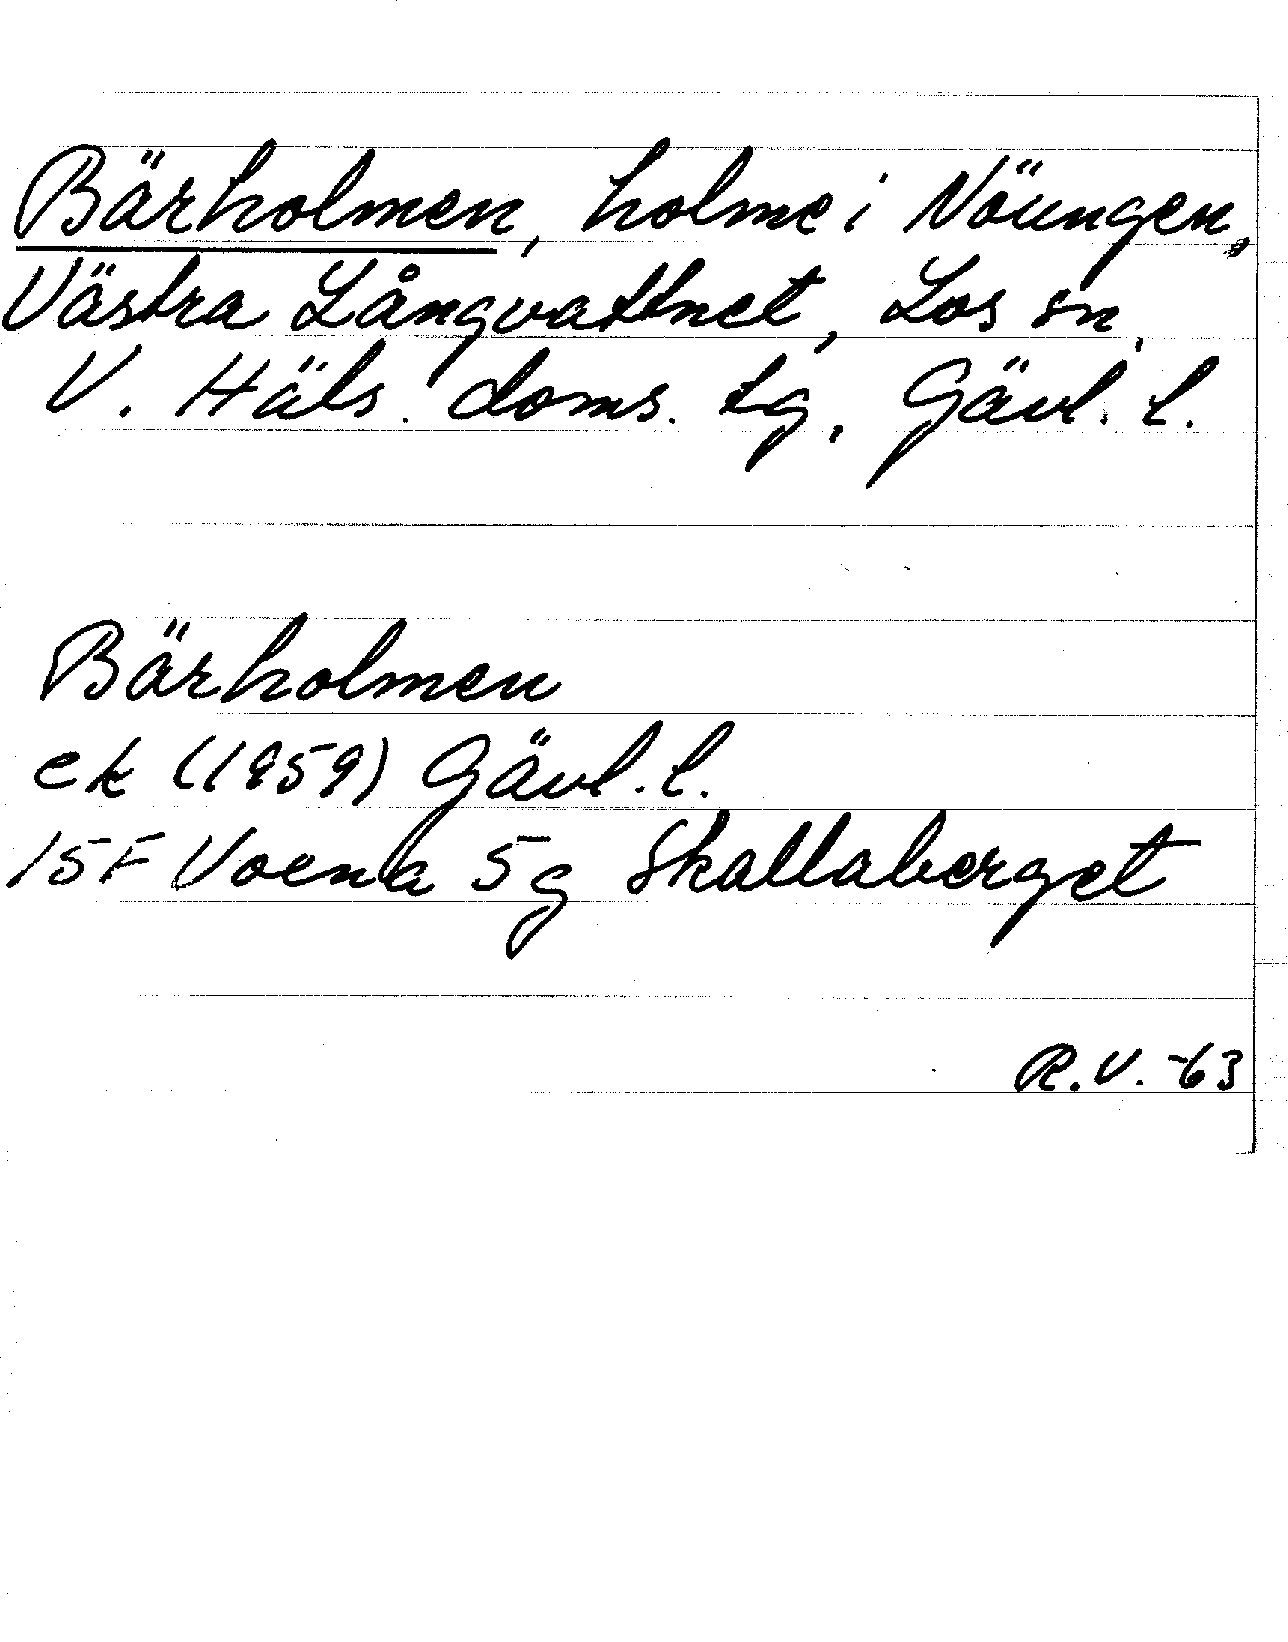 Bärholmen, holme i Nöungen,
Västra Långvattnet, Los sn,
V. Häls. doms. tg, Gävl. l.
Bärholmen
ek (1959) Gävl. l.
15F Voxna 5g Skallaberget
R.V. -63